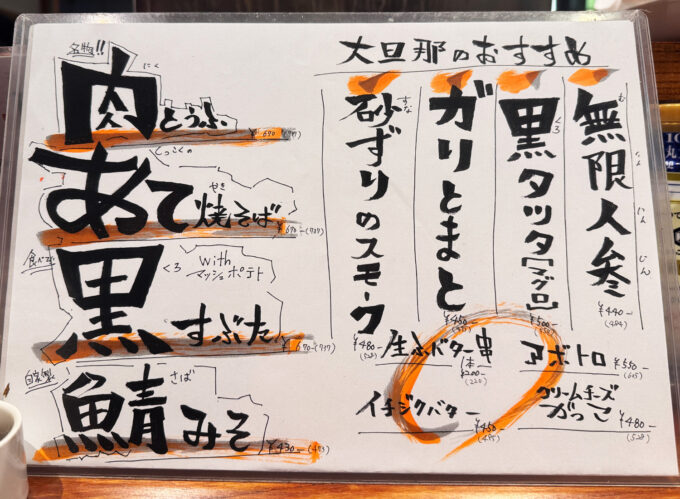 名物!!
にく
肉とうふ
¥690-(759)
とっこくの
あて焼そば
やき
¥690-(759)
食べて
黒すぶた
くろ
with
マッシュポテト
¥670-(737)
自家製
鯖みそ
さば
¥430-(473)
大旦那のおすすめ
無限人参
む げん にん じん
¥440-
(484)
黒タツタ[マグロ]
くろ
¥500-
(550)
ガリとまと
¥450
砂ずりのスモーク
すな
¥480-
(528)
生ふバター串
1本
¥200-
(220)
アボトロ
¥550-
(605)
イチジクバター
¥450-
(495)
クリームチーズ
がっこ
¥480-
(528)